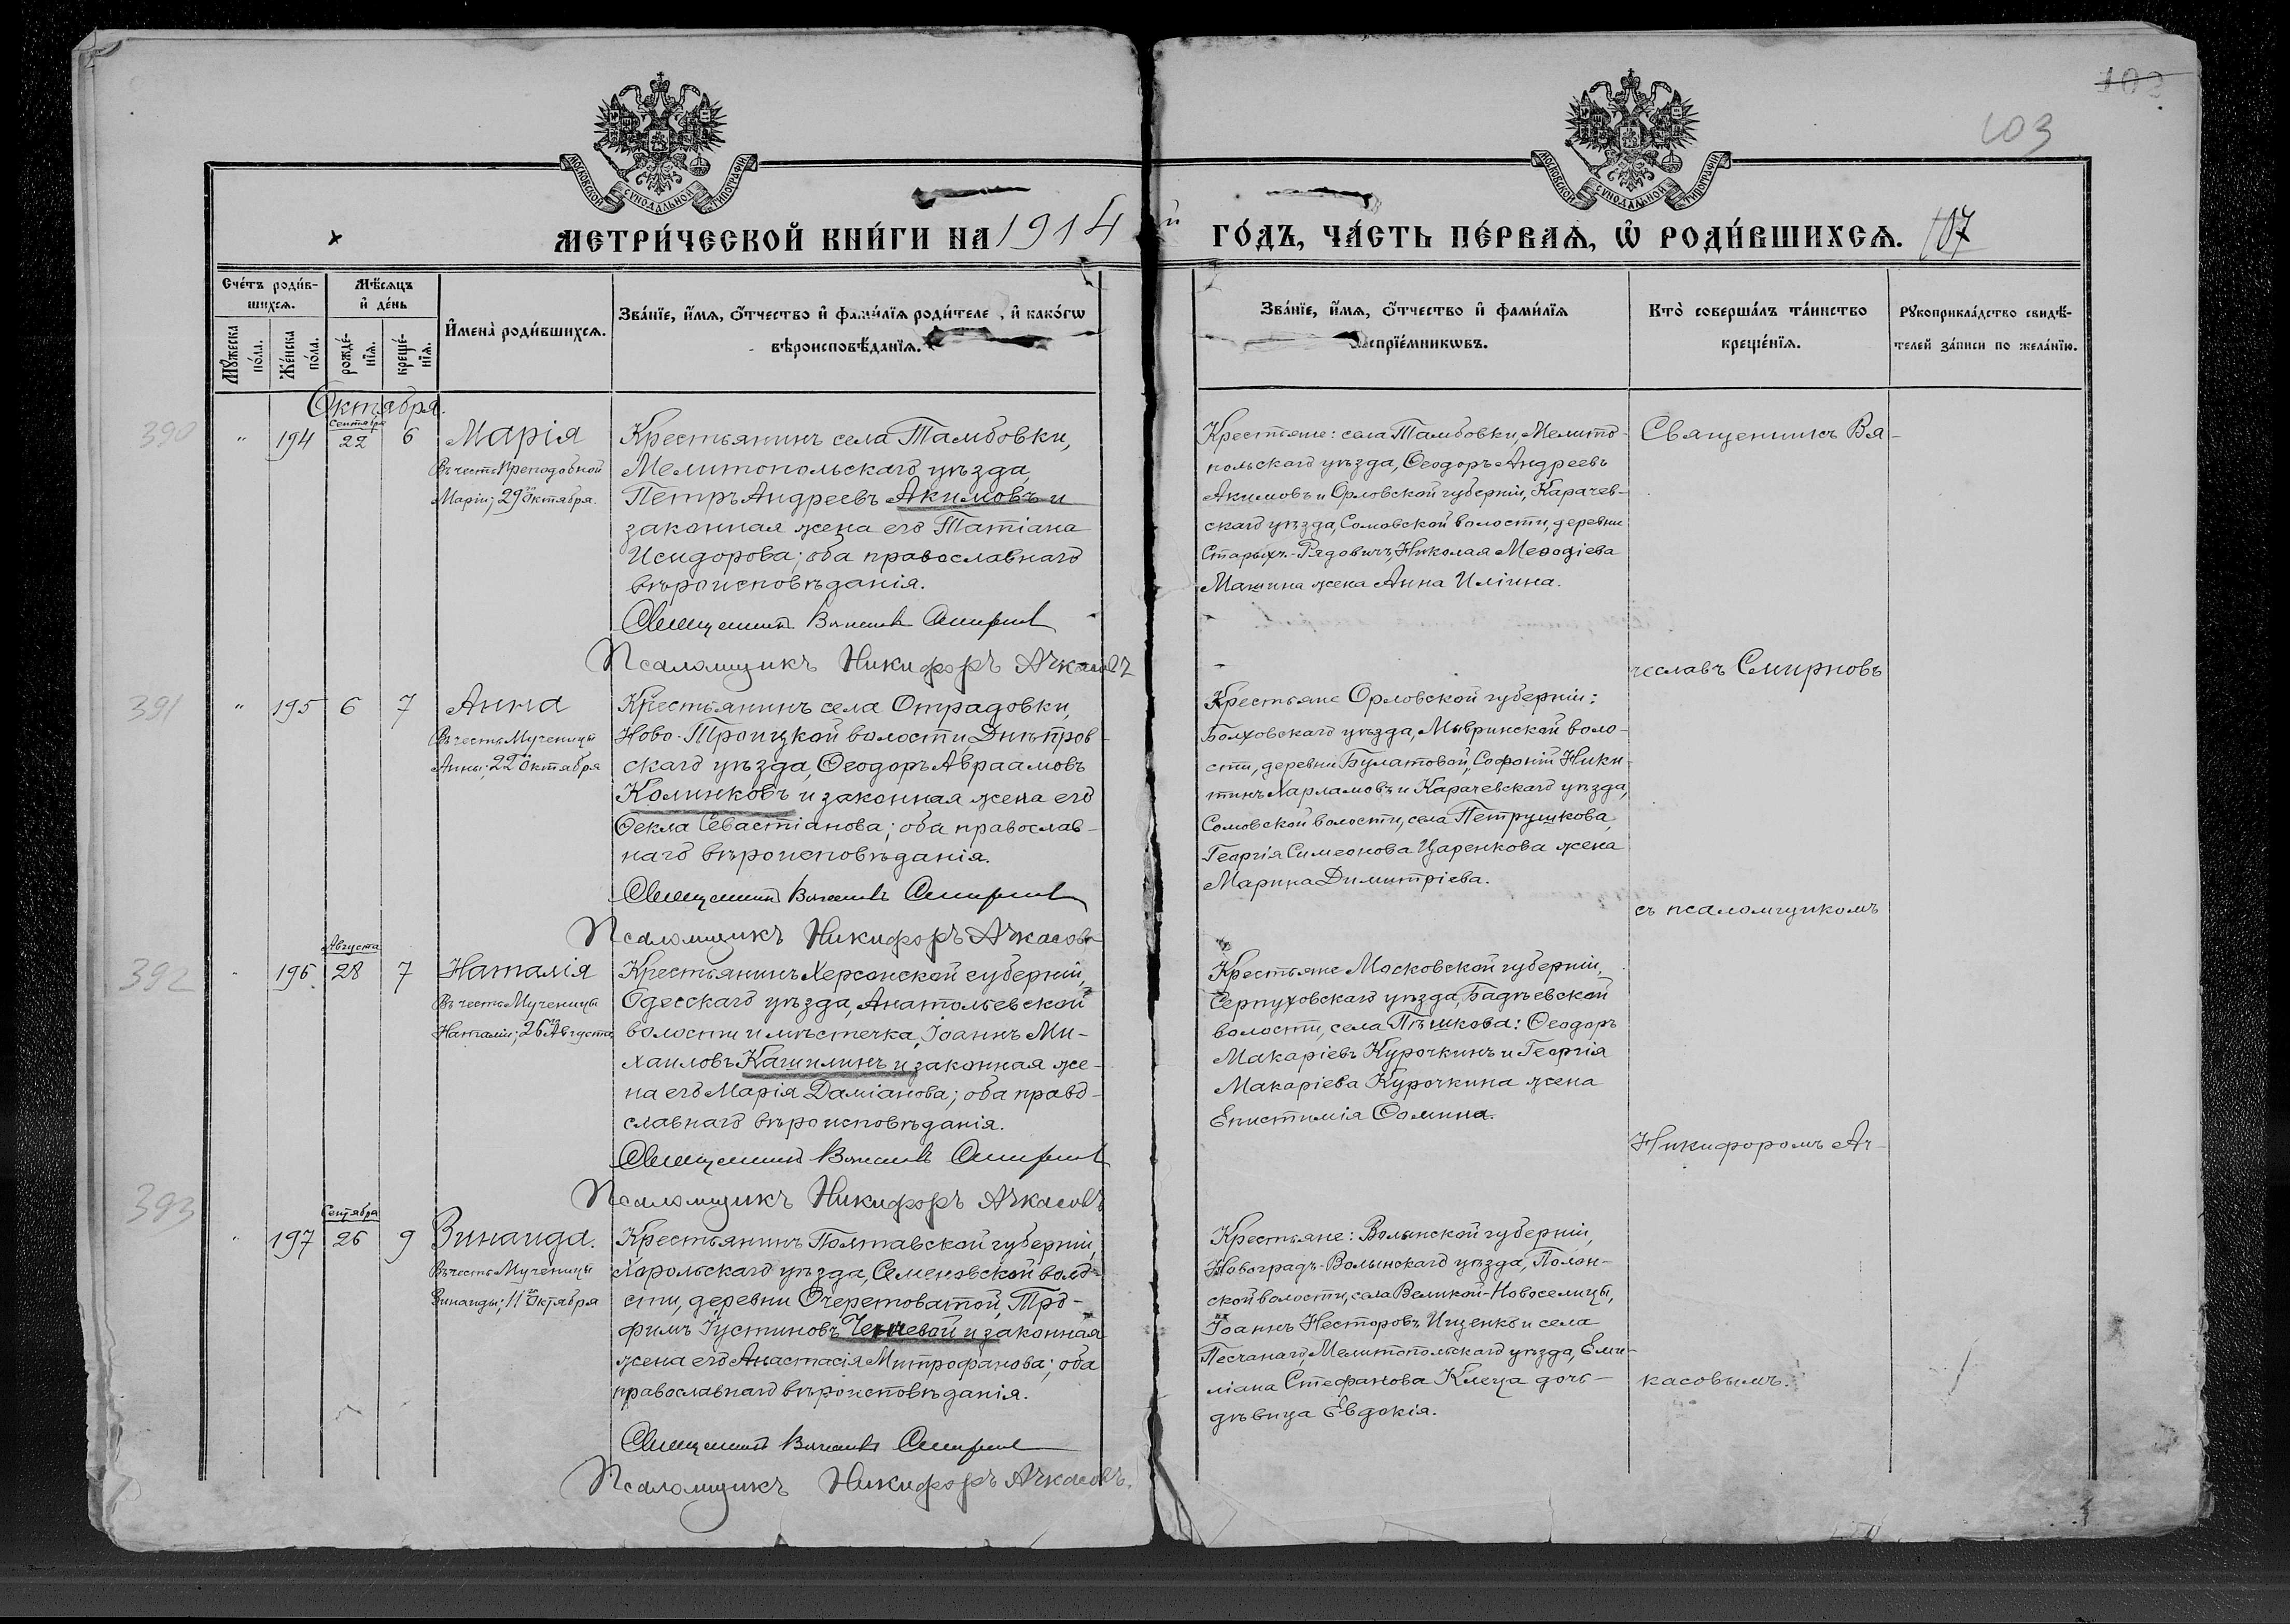 103
103
МОСКОВСКОЙ СѴНОДАЛЬНОЙ ТИПОГРАФІИ
МОСКОВСКОЙ СѴНОДАЛЬНОЙ ТИПОГРАФІИ
МЕТРИ́ЧЕСКОЙ КНИ́ГИ НА 1914 й ГО́ДЪ, ЧА́СТЬ ПЕ́РВАѦ, Ѡ҆ РОДИ́ВШИХСѦ. 107
Сче́тъ роди́в-
шихсѧ.
Мꙋ́жеска
по́ла.
Же́нска
по́ла.
Мѣ́сѧцъ
и҆ де́нь
рожде́-
нїѧ.
креще́-
нїѧ.
И҆мена̀ роди́вшихсѧ.
Зва́нїе, и҆́мѧ, ѻ҆́тчество и҆ фами́лїѧ роди́теле , и҆ како́гѡ
вѣроисповѣ́данїѧ.
Зва́нїе, и҆́мѧ, ѻ҆́тчество и҆ фами́лїѧ
воспрїе́мникѡвъ.
Кто̀ соверша́лъ та́инство
креще́нїѧ.
Рꙋкоприкла́дство свидѣ́-
телей за́писи по жела́нїю.
Октября.
390
" 194 Сентября 22 6
Марія
Въ честь Преподобной
Маріи; 29го Октября.
Крестьянинъ села Тамбовки,
Мелитопольскаго уѣзда,
Петръ Андреевъ Акимовъ и
законная жена его Татіана
Исидорова; оба православнаго
вѣроисповѣданія.
Священникъ Вячеславъ Смирновъ
Псаломщикъ Никифоръ Ачкасовъ
Крестьяне: села Тамбовки, Мелито-
польскаго уѣзда, Ѳеодоръ Андреевъ
Акимовъ и Орловской губерніи, Карачев-
скаго уѣзда, Сомовской волости, деревни
Старыхъ-Рядовичъ, Николая Меѳодіева
Машина жена Анна Иліина.
Священникъ Вя-
чеславъ Смирновъ
391
" 195 6 7
Анна
Въ честь Мученицы
Анны; 22го Октября
Крестьянинъ села Отрадовки,
Ново-Троицкой волости, Днѣпров-
скаго уѣзда, Ѳеодоръ Авраамовъ
Колинковъ и законная жена его
Ѳекла Севастіанова; оба православ-
наго вѣроисповѣданія.
Священникъ Вячеславъ Смирновъ
Псаломщикъ Никифоръ Ачкасовъ
Крестьяне Орловской губерніи:
Болховскаго уѣзда, Мывринской воло-
сти, деревни Булатовой, Софоній Ники-
тинъ Харламовъ и Карачевскаго уѣзда,
Сомовской волости, села Петрушкова,
Георгія Симеонова Царенкова жена
Марина Димитріева.
съ псаломщикомъ
392
" 196 Августа 28 7
Наталія
Въ честь Мученицы
Наталіи; 26го Августа
Крестьянинъ Херсонской губерніи,
Одесскаго уѣзда, Анатольевской
волости и мѣстечка, Іоаннъ Ми-
хаиловъ Кашилинъ и законная же-
на его Марія Даміанова; оба право-
славнаго вѣроисповѣданія.
Священникъ Вячеславъ Смирновъ
Псаломщикъ Никифоръ Ачкасовъ
Крестьяне Московской губерніи,
Серпуховскаго уѣзда, Бадѣевской
волости, села Пѣшкова: Ѳеодоръ
Макаріевъ Курочкинъ и Георгія
Макаріева Курочкина жена
Епистимія Ѳомина.
Никифоромъ Ач-
393
" 197 Сентября 26 9
Зинаида.
Въ честь Мученицы
Зинаиды; 11го Октября
Крестьянинъ Полтавской губерніи,
Хорольскаго уѣзда, Семеновской воло-
сти, деревни Очеретоватой, Тро-
фимъ Іустиновъ и законная
жена его Анастасія Митрофанова; оба
православнаго вѣроисповѣданія.
Священникъ Вячеславъ Смирновъ
Псаломщикъ Никифоръ Ачкасовъ.
Крестьяне: Волынской губерніи,
Новоградъ-Волынскаго уѣзда, Полон-
ской волости, села Великой-Новоселицы,
Іоаннъ Несторовъ Ищенко и села
Песчанаго, Мелитопольскаго уѣзда, Еми-
ліана Стефанова Клеца дочь-
дѣвица Евдокія.
касовымъ.